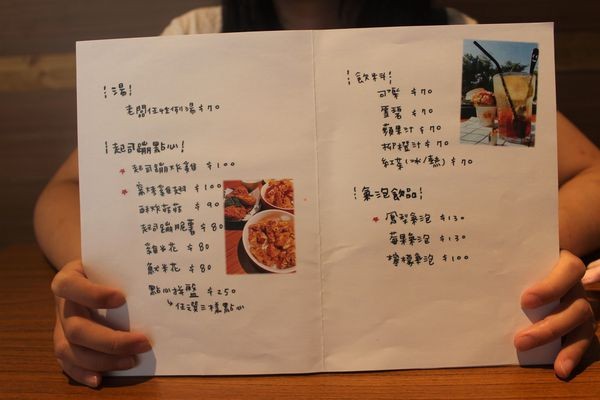 湯
老闆任性例湯 $70
起司蹦點心
★ 起司蹦炸雞 $100
★ 窯烤雞翅 $100
酥炸菇菇 $90
起司蹦脆薯 $80
雞米花 $80
魷米花 $80
點心拼盤 $250
↳ 任選三樣點心
飲料
可樂 $70
雪碧 $70
蘋果汁 $70
柳橙汁 $70
紅茶(冰/熱) $70
氣泡飲品
★ 鳳梨氣泡 $130
莓果氣泡 $130
檸檬氣泡 $100